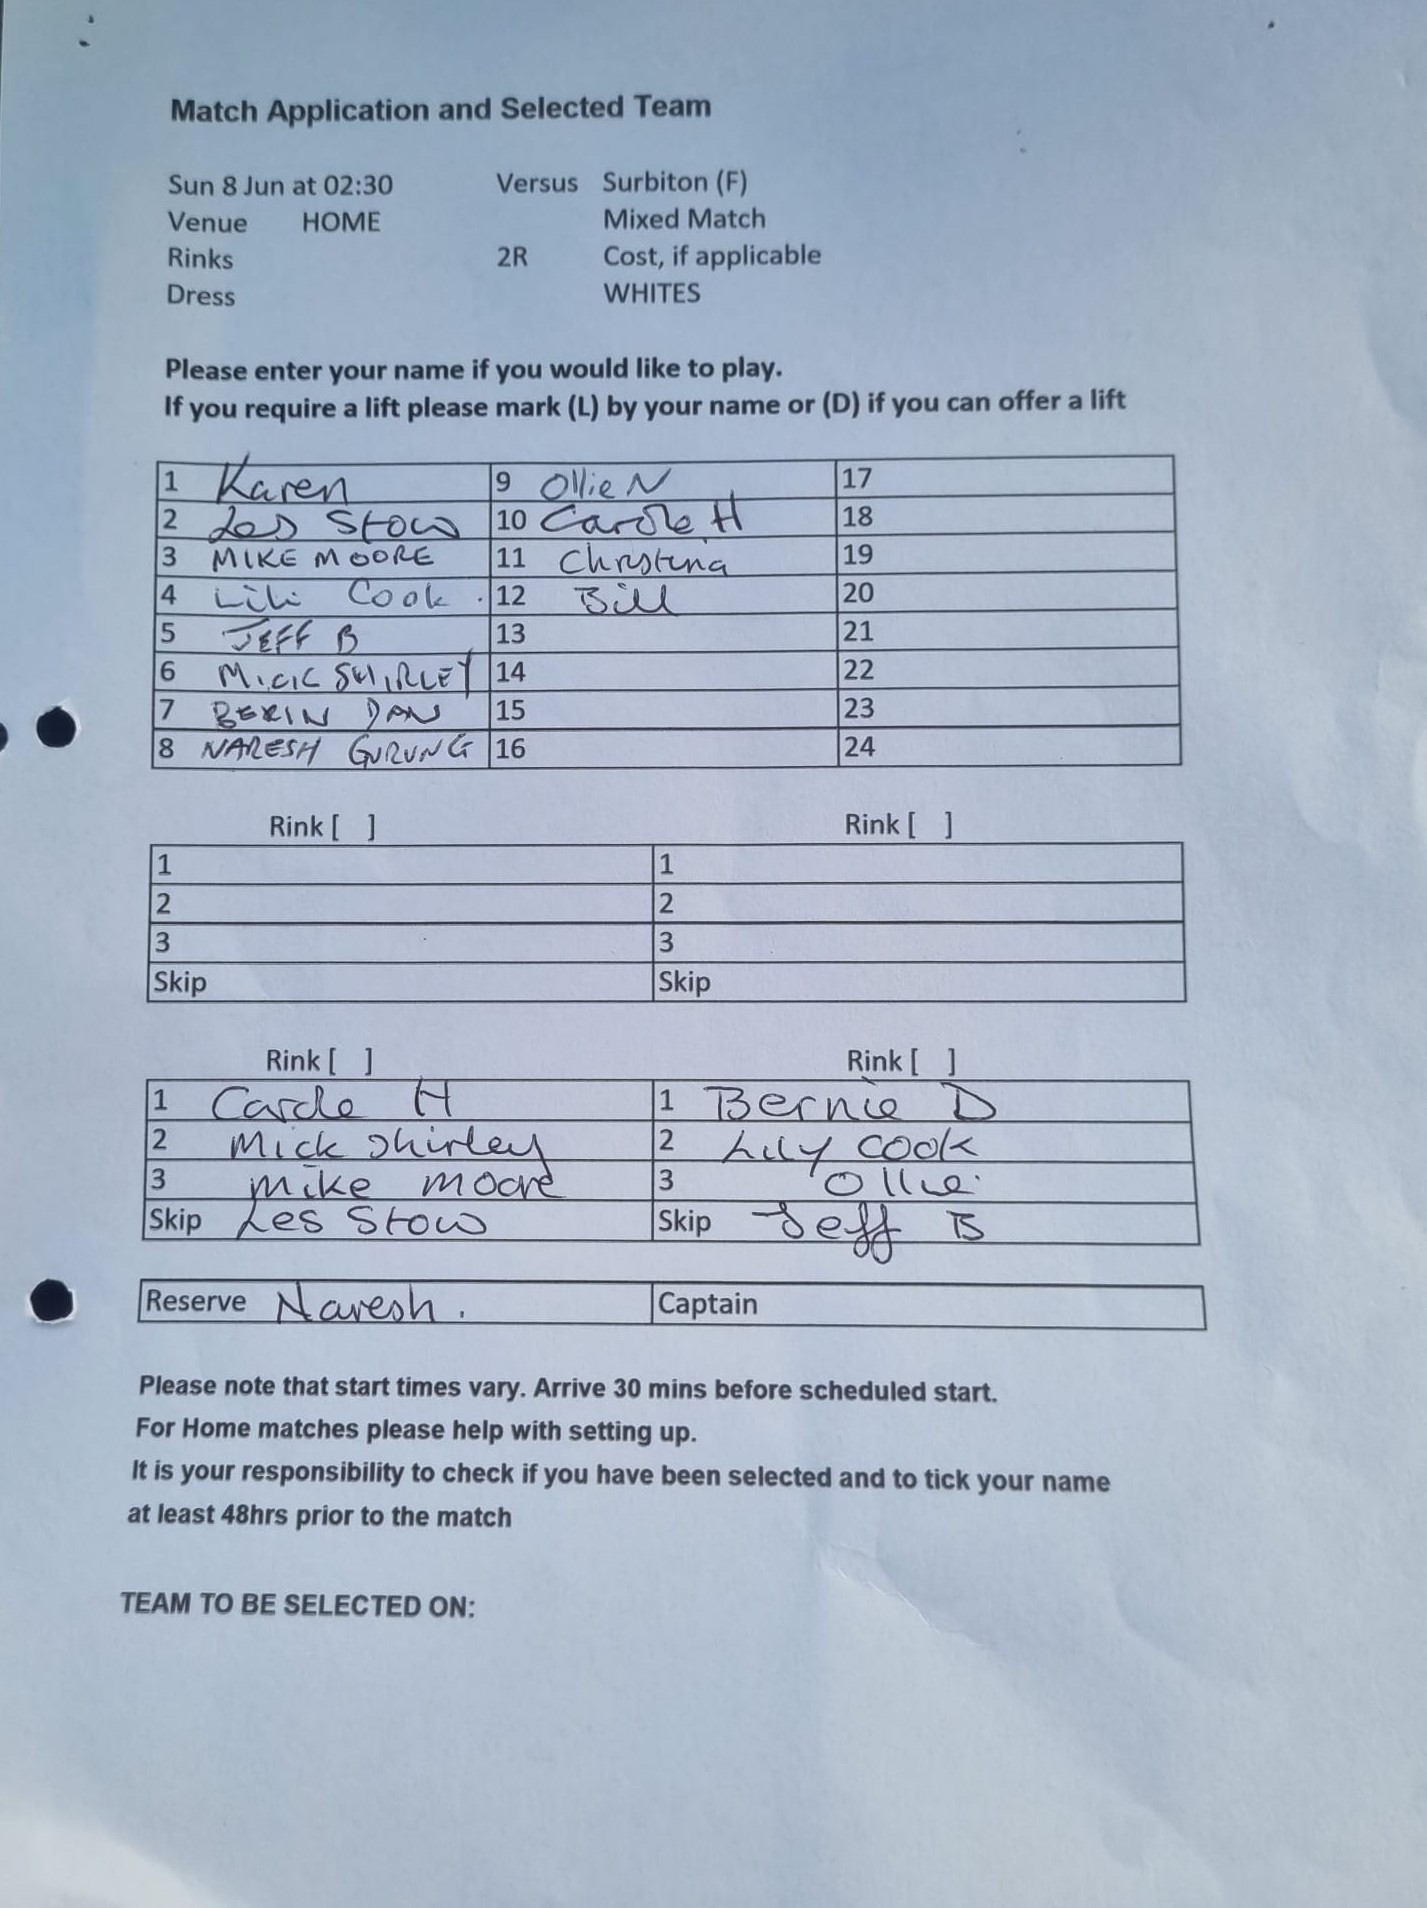 Match Application and Selected Team
Sun 8 Jun at 02:30 Versus Surbiton (F)
Venue HOME Mixed Match
Rinks 2R Cost, if applicable
Dress WHITES
Please enter your name if you would like to play.
If you require a lift please mark (L) by your name or (D) if you can offer a lift
1 Karen 9 Ollie N 17
2 Les Stow 10 Carole H 18
3 MIKE MOORE 11 Christina 19
4 Lili Cook 12 Bill 20
5 JEFF B 13 21
6 MICK SHIRLEY 14 22
7 15 23
8 NARESH GURUNG 16 24
Rink [ ] Rink [ ]
1 1
2 2
3 3
Skip Skip
Rink [ ] Rink [ ]
1 Carole H 1 Bernie D
2 Mick Shirley 2 Lily Cook
3 Mike Moore 3 Ollie
Skip Les Stow Skip Jeff B
Reserve Naresh. Captain
Please note that start times vary. Arrive 30 mins before scheduled start.
For Home matches please help with setting up.
It is your responsibility to check if you have been selected and to tick your name
at least 48hrs prior to the match
TEAM TO BE SELECTED ON: